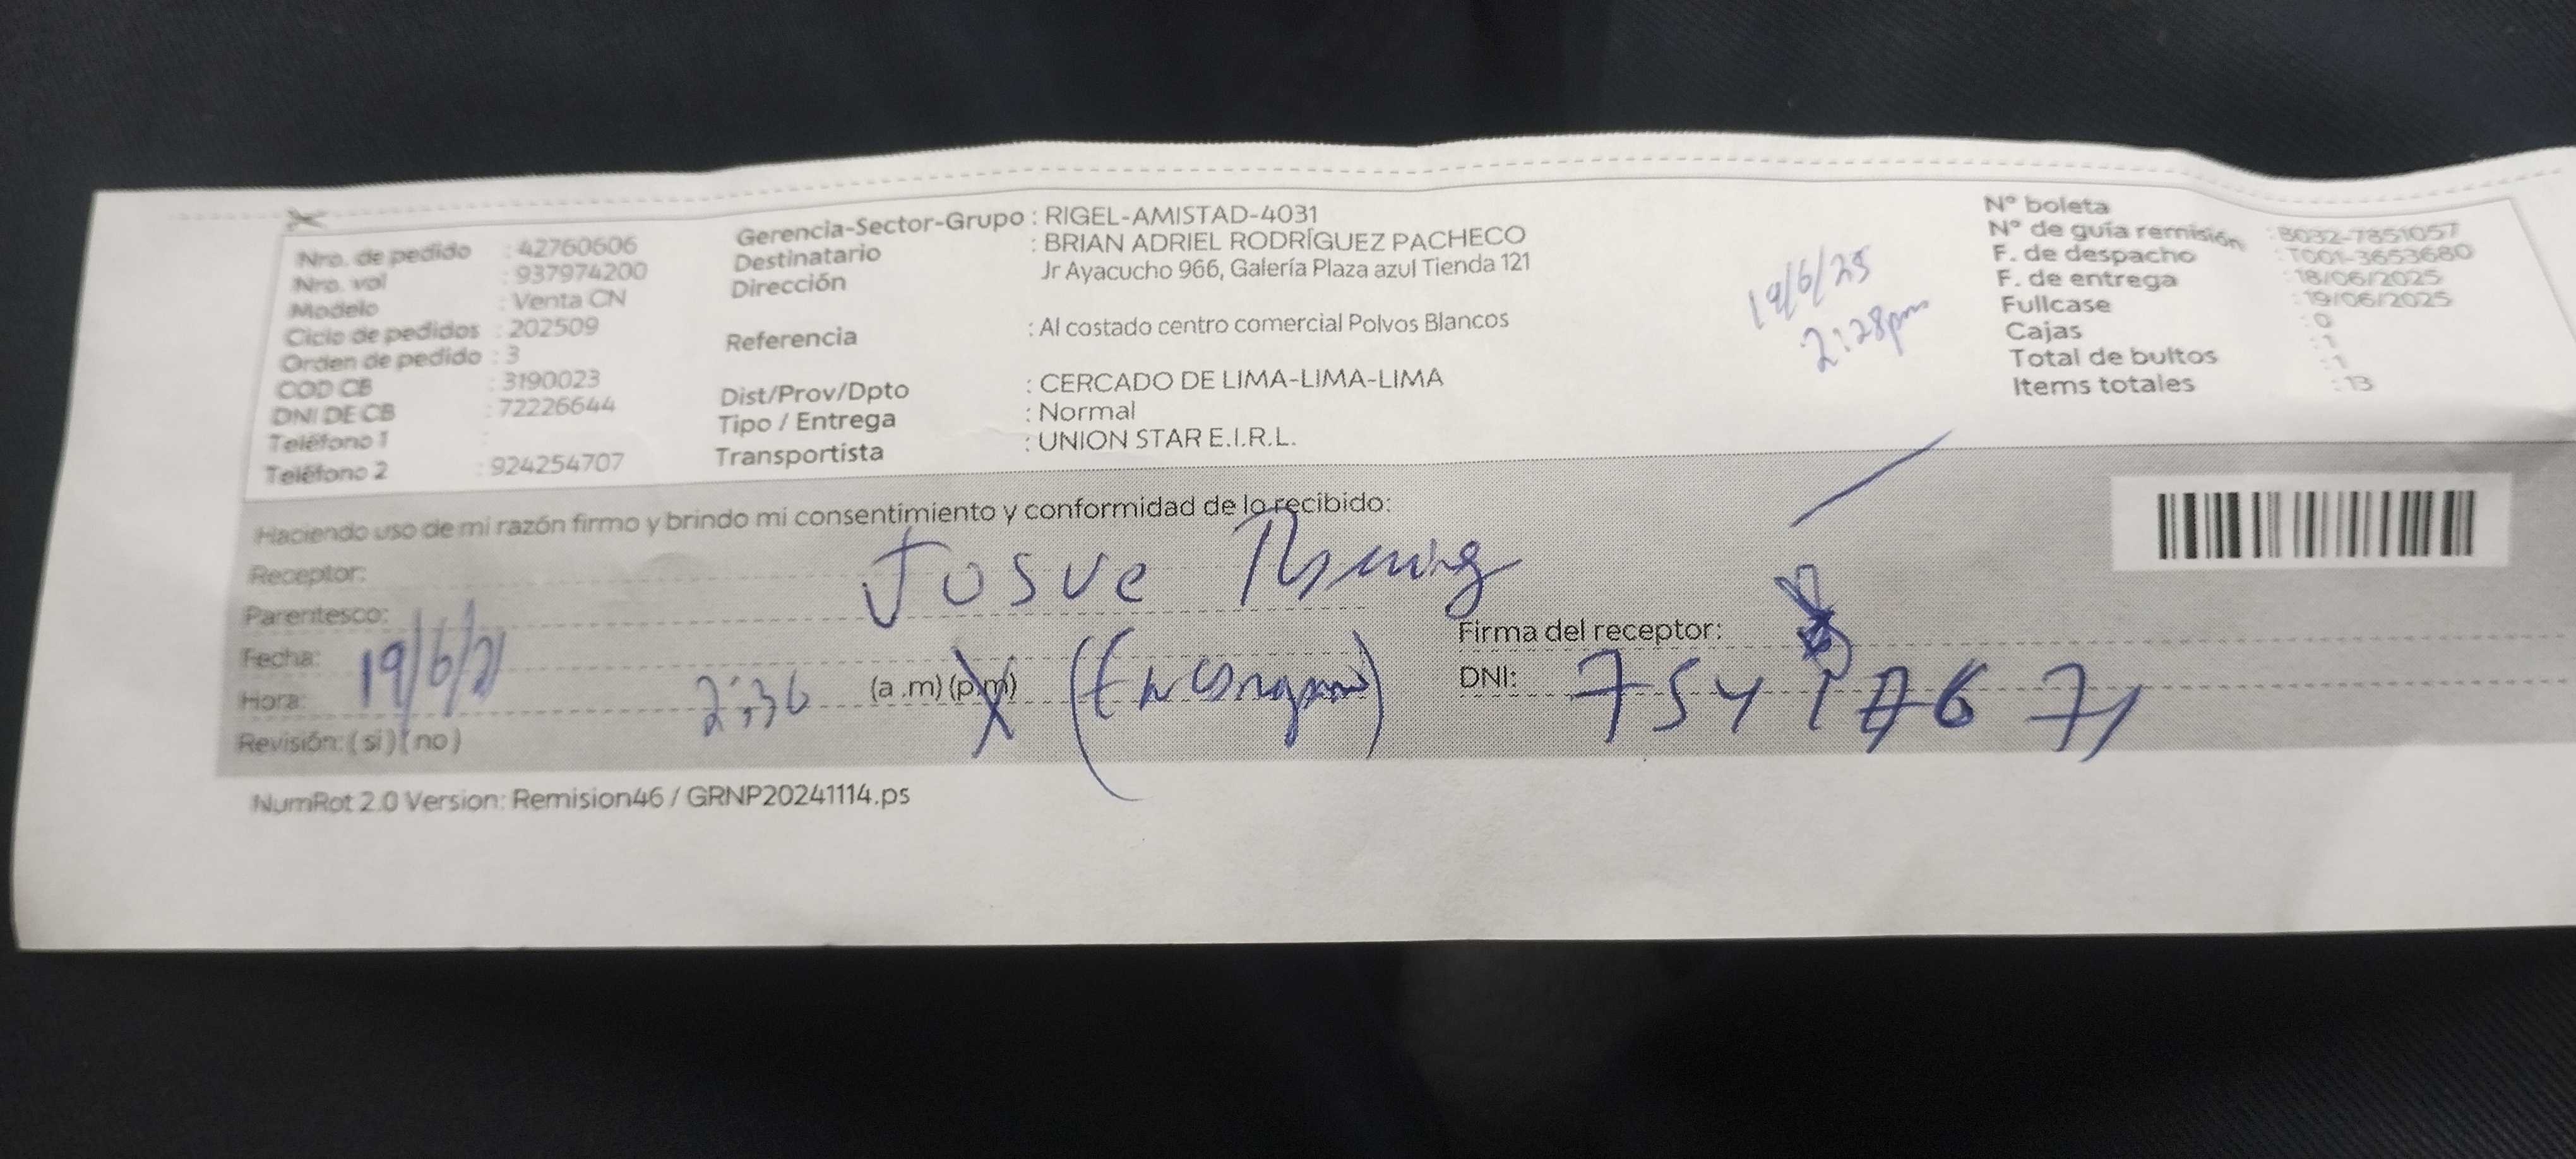 Nro. de pedido : 42760606
Nro. vol : 937974200
Modelo : Venta CN
Ciclo de pedidos : 202509
Orden de pedido : 3
COD CB : 3190023
DNI DE CB : 72226644
Teléfono 1 :
Teléfono 2 : 924254707
Gerencia-Sector-Grupo : RIGEL-AMISTAD-4031
Destinatario : BRIAN ADRIEL RODRÍGUEZ PACHECO
Dirección Jr Ayacucho 966, Galería Plaza azul Tienda 121
Referencia : Al costado centro comercial Polvos Blancos
Dist/Prov/Dpto : CERCADO DE LIMA-LIMA-LIMA
Tipo / Entrega : Normal
Transportista : UNION STAR E.I.R.L.
19/6/25
2:28pm
N° boleta : B032-7851057
N° de guía remisión : T001-3653680
F. de despacho : 18/06/2025
F. de entrega : 19/06/2025
Fullcase : 0
Cajas : 1
Total de bultos : 1
Items totales : 13
Haciendo uso de mi razón firmo y brindo mi consentimiento y conformidad de lo recibido:
Receptor: Josue
Parentesco:
Fecha: 19/6/2
Hora: 2:36 (a.m) (p.m)
Revisión: ( si ) ( no )
Firma del receptor:
DNI:
NumRot 2.0 Version: Remision46 / GRNP20241114.ps